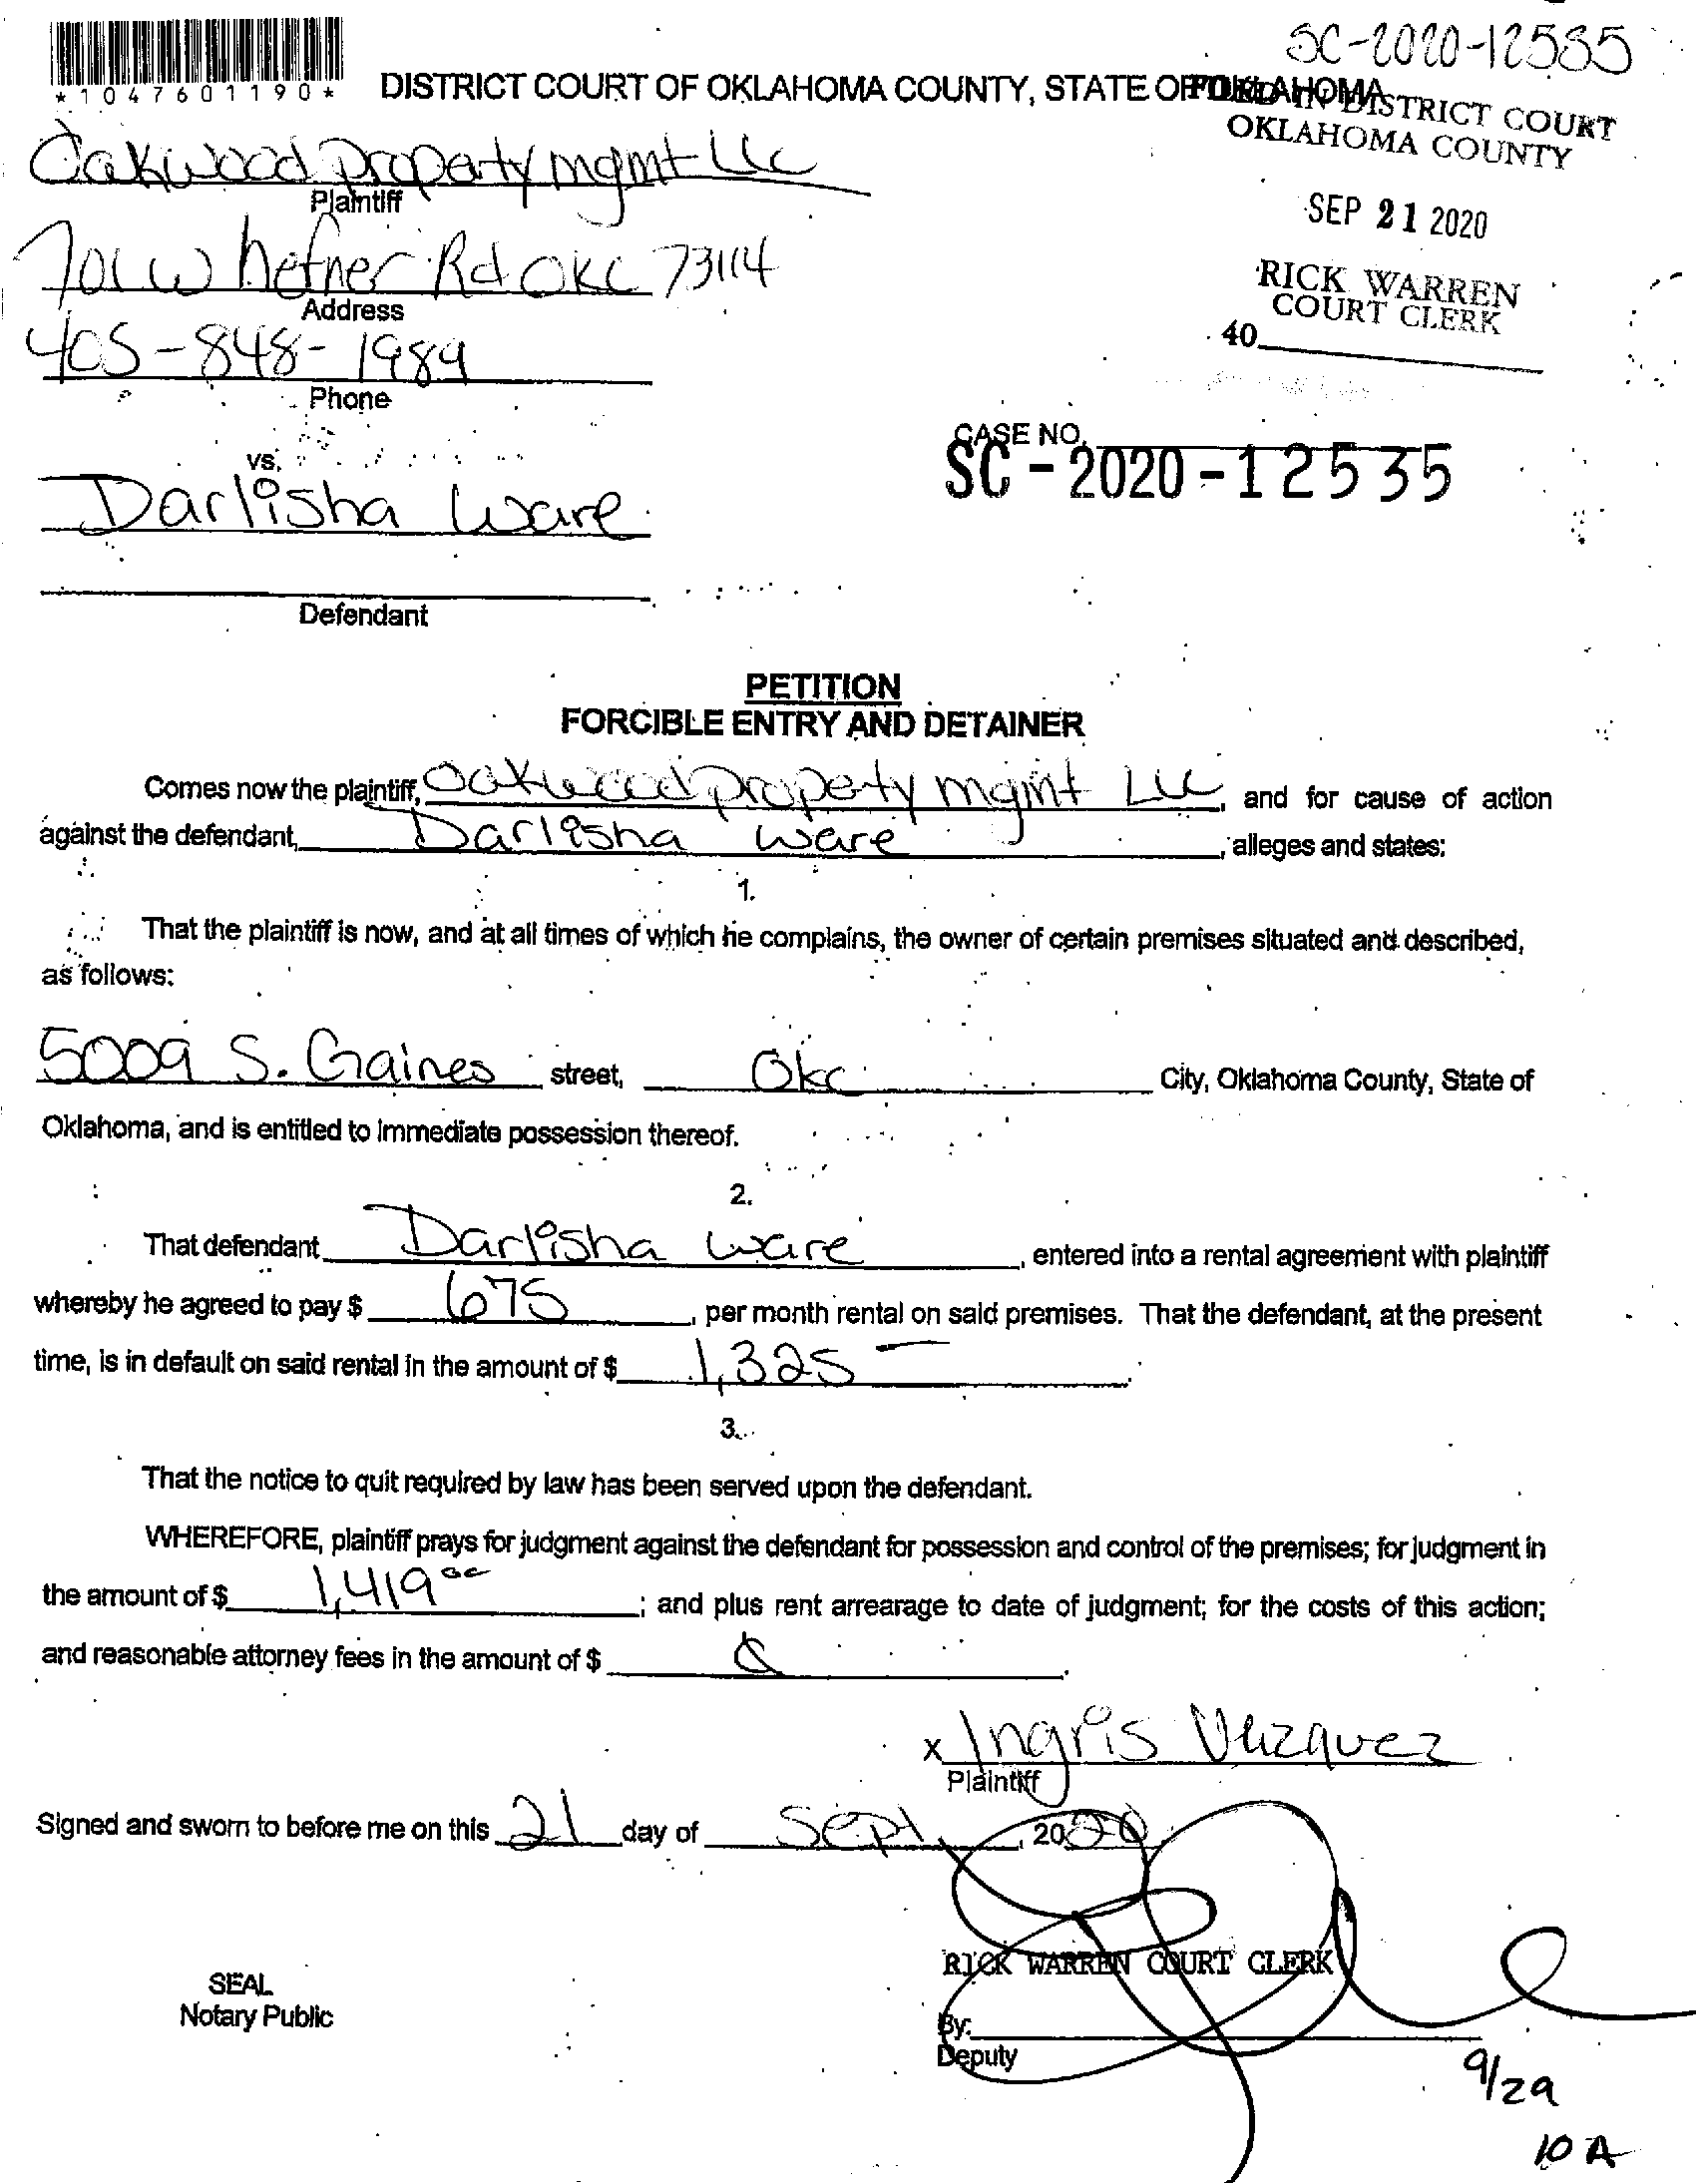 SC-2020-12535
*1047601190*
DISTRICT COURT OF OKLAHOMA COUNTY, STATE OF OKLAHOMA
FILED IN DISTRICT COURT
OKLAHOMA COUNTY
Oakwood property mgmt LLC
Plaintiff
SEP 21 2020
701 W hefner Rd OKC 73114
Address
RICK WARREN
COURT CLERK
40
405-848-1989
Phone
CASE NO.
SC-2020-12535
vs.
Darlisha Ware
Defendant
PETITION
FORCIBLE ENTRY AND DETAINER
Comes now the plaintiff, Oakwood property mgmt LLC, and for cause of action
against the defendant, Darlisha Ware, alleges and states:
1.
That the plaintiff is now, and at all times of which he complains, the owner of certain premises situated and described,
as follows:
5009 S. Gaines street, Okc City, Oklahoma County, State of
Oklahoma, and is entitled to immediate possession thereof.
2.
That defendant Darlisha Ware, entered into a rental agreement with plaintiff
whereby he agreed to pay $ 675, per month rental on said premises. That the defendant, at the present
time, is in default on said rental in the amount of $ 1,325 —.
3.
That the notice to quit required by law has been served upon the defendant.
WHEREFORE, plaintiff prays for judgment against the defendant for possession and control of the premises; for judgment in
the amount of $ 1,419 00; and plus rent arrearage to date of judgment; for the costs of this action;
and reasonable attorney fees in the amount of $
x Ingris Vazquez
Plaintiff
Signed and sworn to before me on this 21 day of Sept, 2020
RICK WARREN COURT CLERK
SEAL
Notary Public
By:
Deputy
9/29
10 A